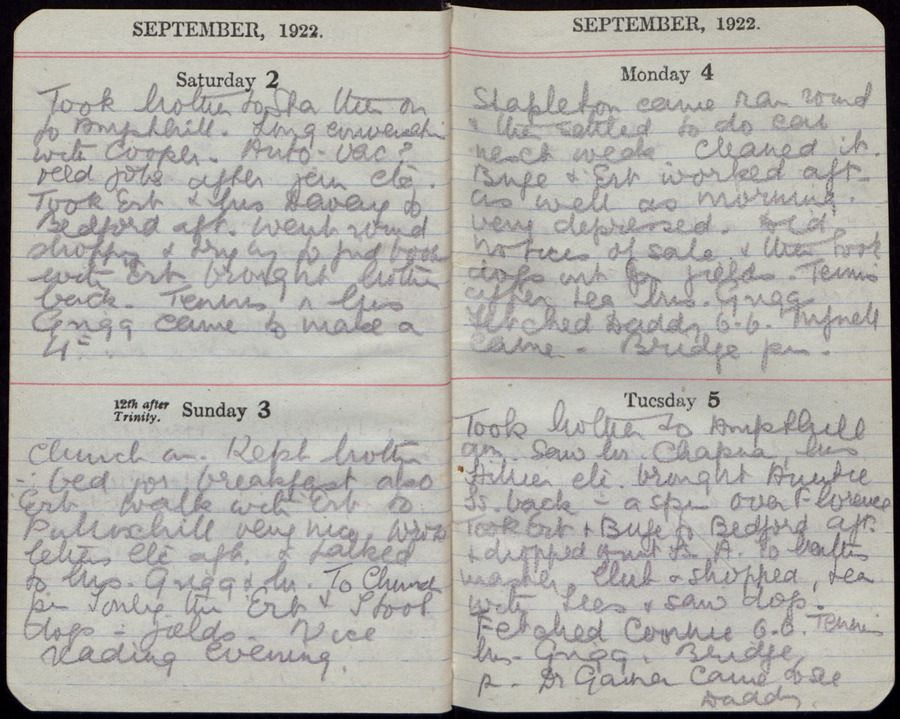 SEPTEMBER, 1922.
Saturday 2
Took Mother to Sta then on
to Ampthill. Long conversatn
with Cooper. Auto-vac?
odd jobs after jem etc.
Took Ert & Mrs Davey to
Bedford aft. went round
shopping & trying to find book
with Ert brought Mother
back. Tennis & Mrs
Grigg came to make a
4th.
12th after Trinity. Sunday 3
Church am. Kept Mother
in bed for breakfast also
Ert. Walk with Ert to
Pulloxhill very nice. Wrote
letters etc aft. & talked
to Mrs. Grigg & Mr. To Church
pm only then Ert & I took
dogs in fields. Nice
reading evening.
SEPTEMBER, 1922.
Monday 4
Stapleton came ran round
& then settled to do car
next week. Cleaned it.
Buge & Ert worked aft.
as well as morning.
very depressed. Did
notices of sale & then took
dogs out for fields. Tennis
after tea Mrs. Grigg
Fetched Daddy 6.6. Tyrell
came. Bridge pm.
Tuesday 5
Took Mother to Ampthill
am. Saw Mr. Chapman, Mrs
etc. brought Auntie
Is. back in a spin over Florence
Took Ert & Buge to Bedford aft.
& dropped A. to
master, Club & shopped, tea
with Lees & saw dop.
Fetched Connie 6.6. Tennis
Mrs. Grigg. Bridge
p. Dr Garner came to see
Daddy.